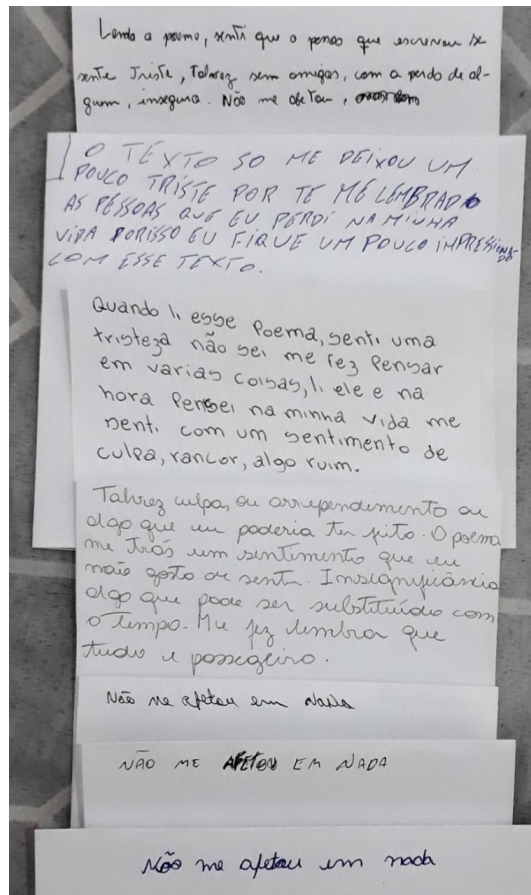 Lendo a poema, senti que o pessoa que escreveu se
sente Triste, Talvez sem amigos, com a perda de al-
guem, insegura. Não me afetou,
O TEXTO SO ME DEIXOU UM
POUCO TRISTE POR TE ME LEMBRADO
AS PESSOAS QUE EU PERDI NA MINHA
VIDA PORISSO EU FIQUE UM POUCO IMPRESSIONADO
COM ESSE TEXTO.
Quando li esse Poema, senti uma
tristeza não sei me fez Pensar
em varias coisas, li ele e na
hora Pensei na minha vida me
senti com um sentimento de
culpa, rancor, algo ruim.
Talvez culpa, ou arrependimento ou
algo que eu poderia ter feito. O poema
me trás um sentimento que eu
não gosto de sentir. Insignificância
algo que pode ser substituído com
o Tempo. Me fez lembrar que
tudo é passageiro.
Não me afetou em nada
NÃO ME AFETOU EM NADA
Não me afetou em nada